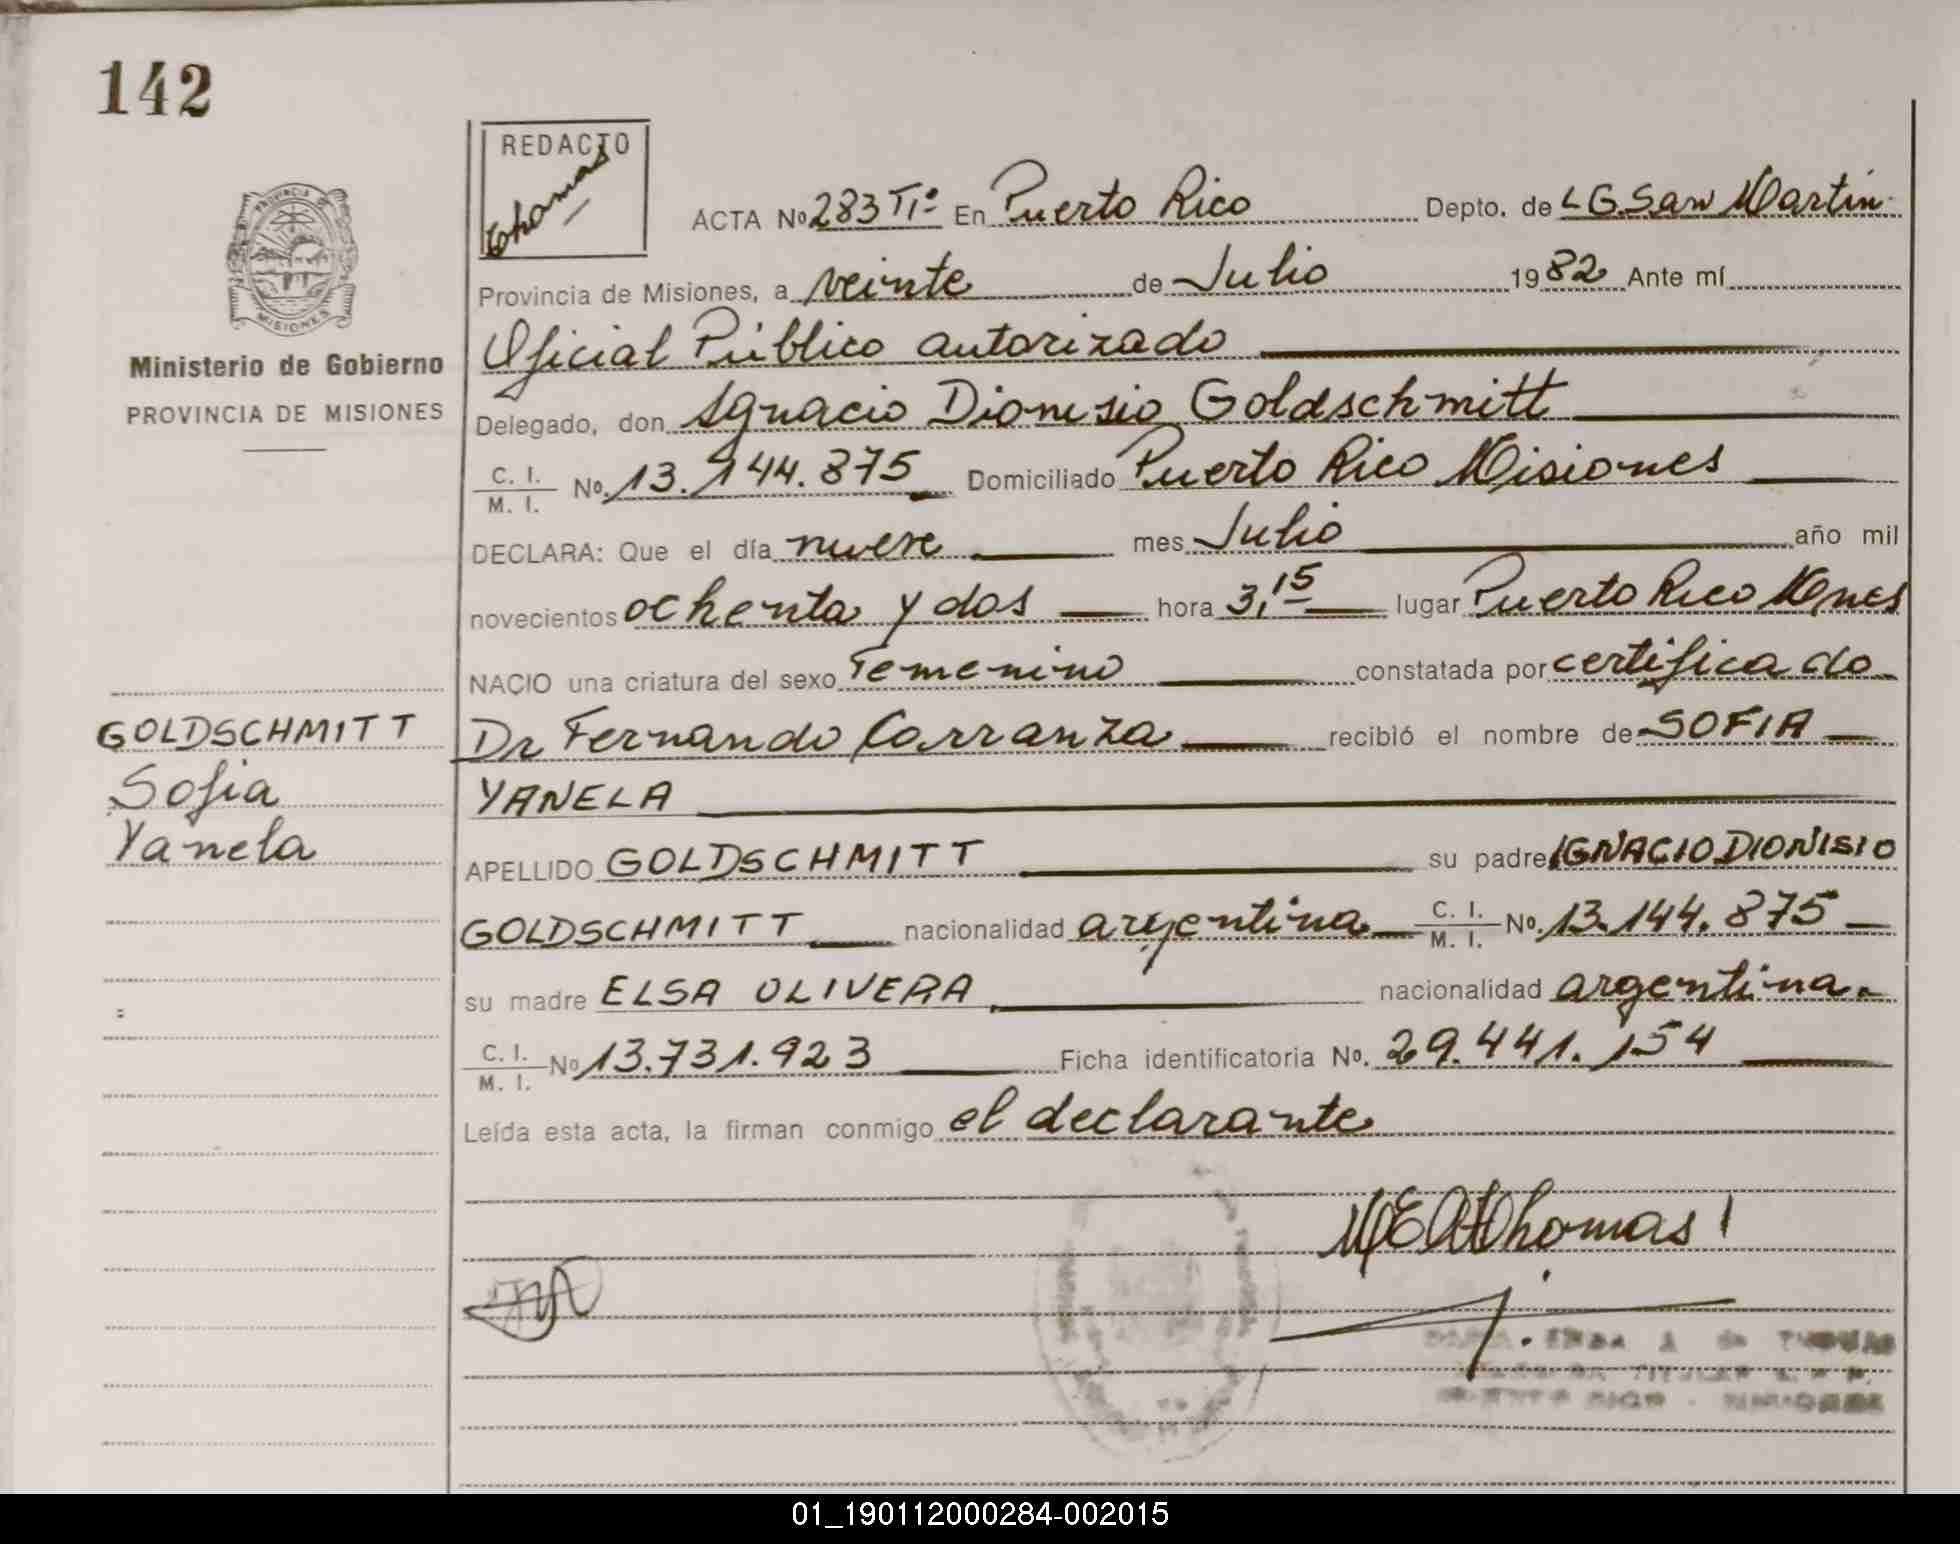 142
REDACTO
Thomas
PROVINCIA DE
MISIONES
Ministerio de Gobierno
PROVINCIA DE MISIONES
ACTA No 283 TIº En Puerto Rico Depto. de L G. San Martín
Provincia de Misiones, a veinte de Julio 1982 Ante mí
Oficial Público autorizado
Delegado, don Ignacio Dionisio Goldschmitt
C. I. / M. I. No. 13.144.875 Domiciliado Puerto Rico Misiones
DECLARA: Que el día nueve mes Julio año mil
novecientos ochenta y dos hora 3,15 lugar Puerto Rico Mnes
NACIO una criatura del sexo Femenino constatada por certificado
Dr Fernando Carranza recibió el nombre de SOFIA
YANELA
APELLIDO GOLDSCHMITT su padre IGNACIO DIONISIO
GOLDSCHMITT nacionalidad argentina C. I. / M. I. No. 13.144.875
su madre ELSA OLIVERA nacionalidad argentina.
C. I. / M. I. No 13.731.923 Ficha identificatoria No. 29.441.154
Leída esta acta, la firman conmigo el declarante
GOLDSCHMITT
Sofia
Yanela
Thomas
01_190112000284-002015